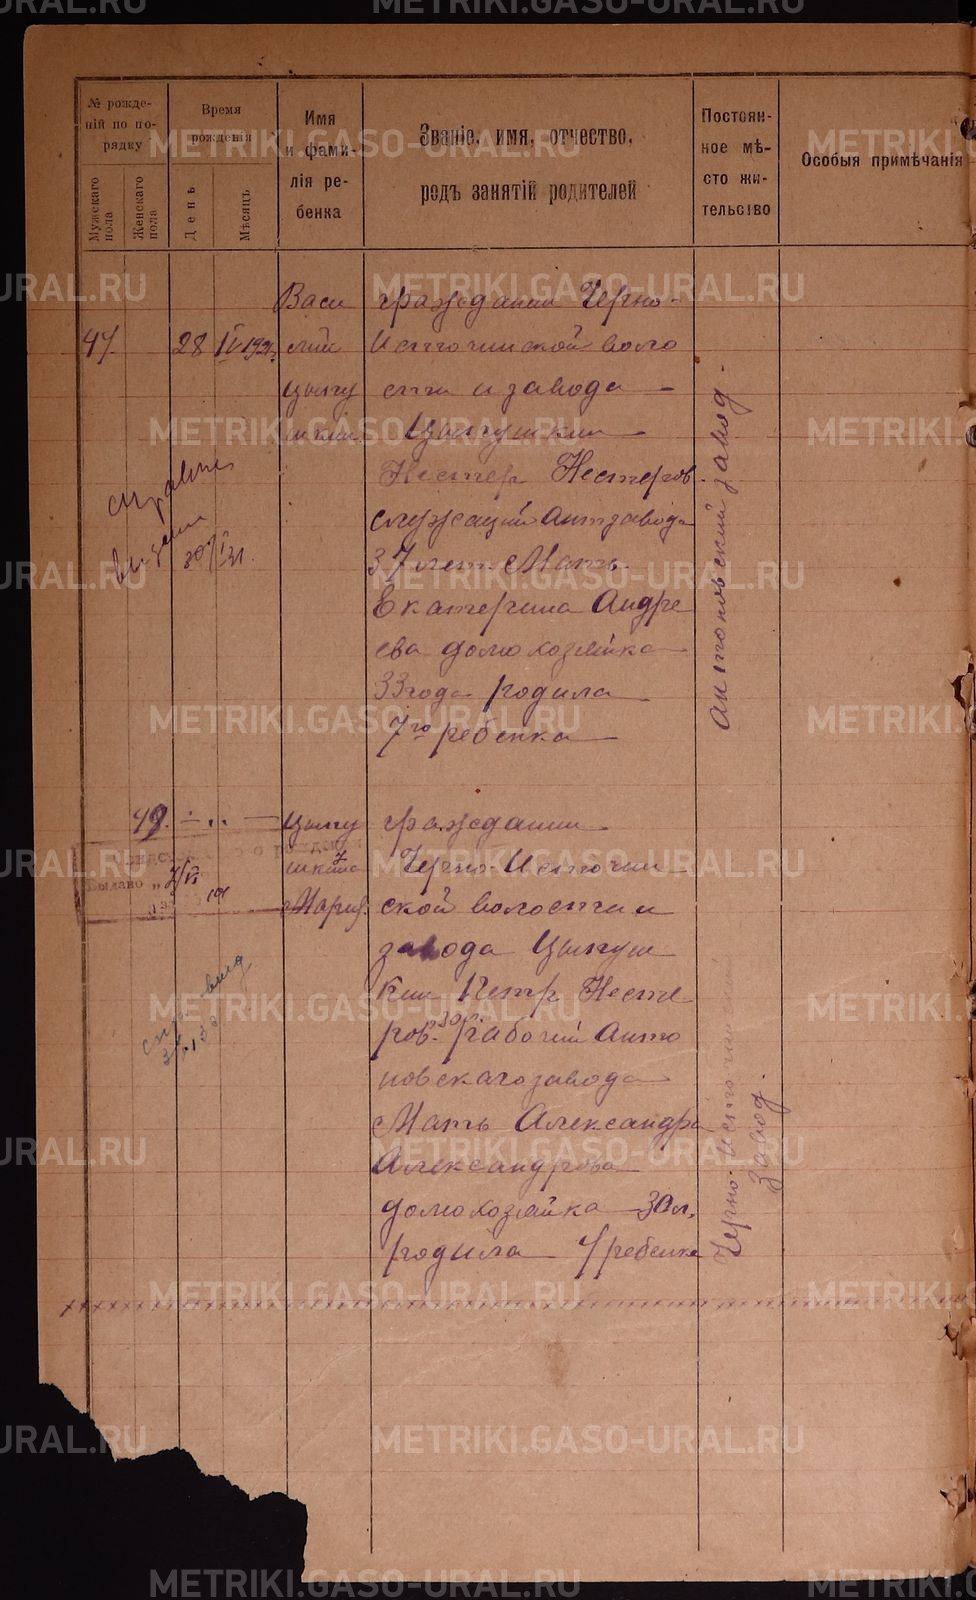 № рожде-
ній по по-
рядку
Мужскаго
пола
Женскаго
пола
Время
рожденія
День
Мѣсяцъ
Имя
и фами-
лія ре-
бенка
Званіе, имя, отчество,
родъ занятій родителей
Постоян-
ное мѣ-
сто жи-
тельство
Особыя примѣчанія
47
28
IV 1921.
Васи
лий
Цыпу
шкин
гражданин Черно-
Источинской воло
сти и завода —
Цыпушкин —
Нестер Нестеров.
служащий Антзавода
37 лет. Мать.
Екатерина Андре
ева домохозяйка —
33 года родила —
7го ребенка —
Антоновский завод.
справка
выдана
30/I 31.
49.
Цыпу
шкина
Мария.
гражданин —
Черно-Источин
ской волости и
завода Цыпуш
кин Петр Несте-
ров. 30 л. рабочий Анто
новского завода —
Мать Александра
Александрова —
домохозяйка — 30 л.
родила — 4 ребенка
Черно-Источинский
завод.
Выдано „
METRIKI.GASO-URAL.RU